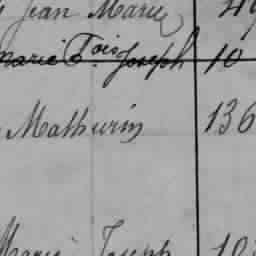 Jean Marie 49
Marie Fois Joseph 10
Mathurin 136
Marie Joseph 10